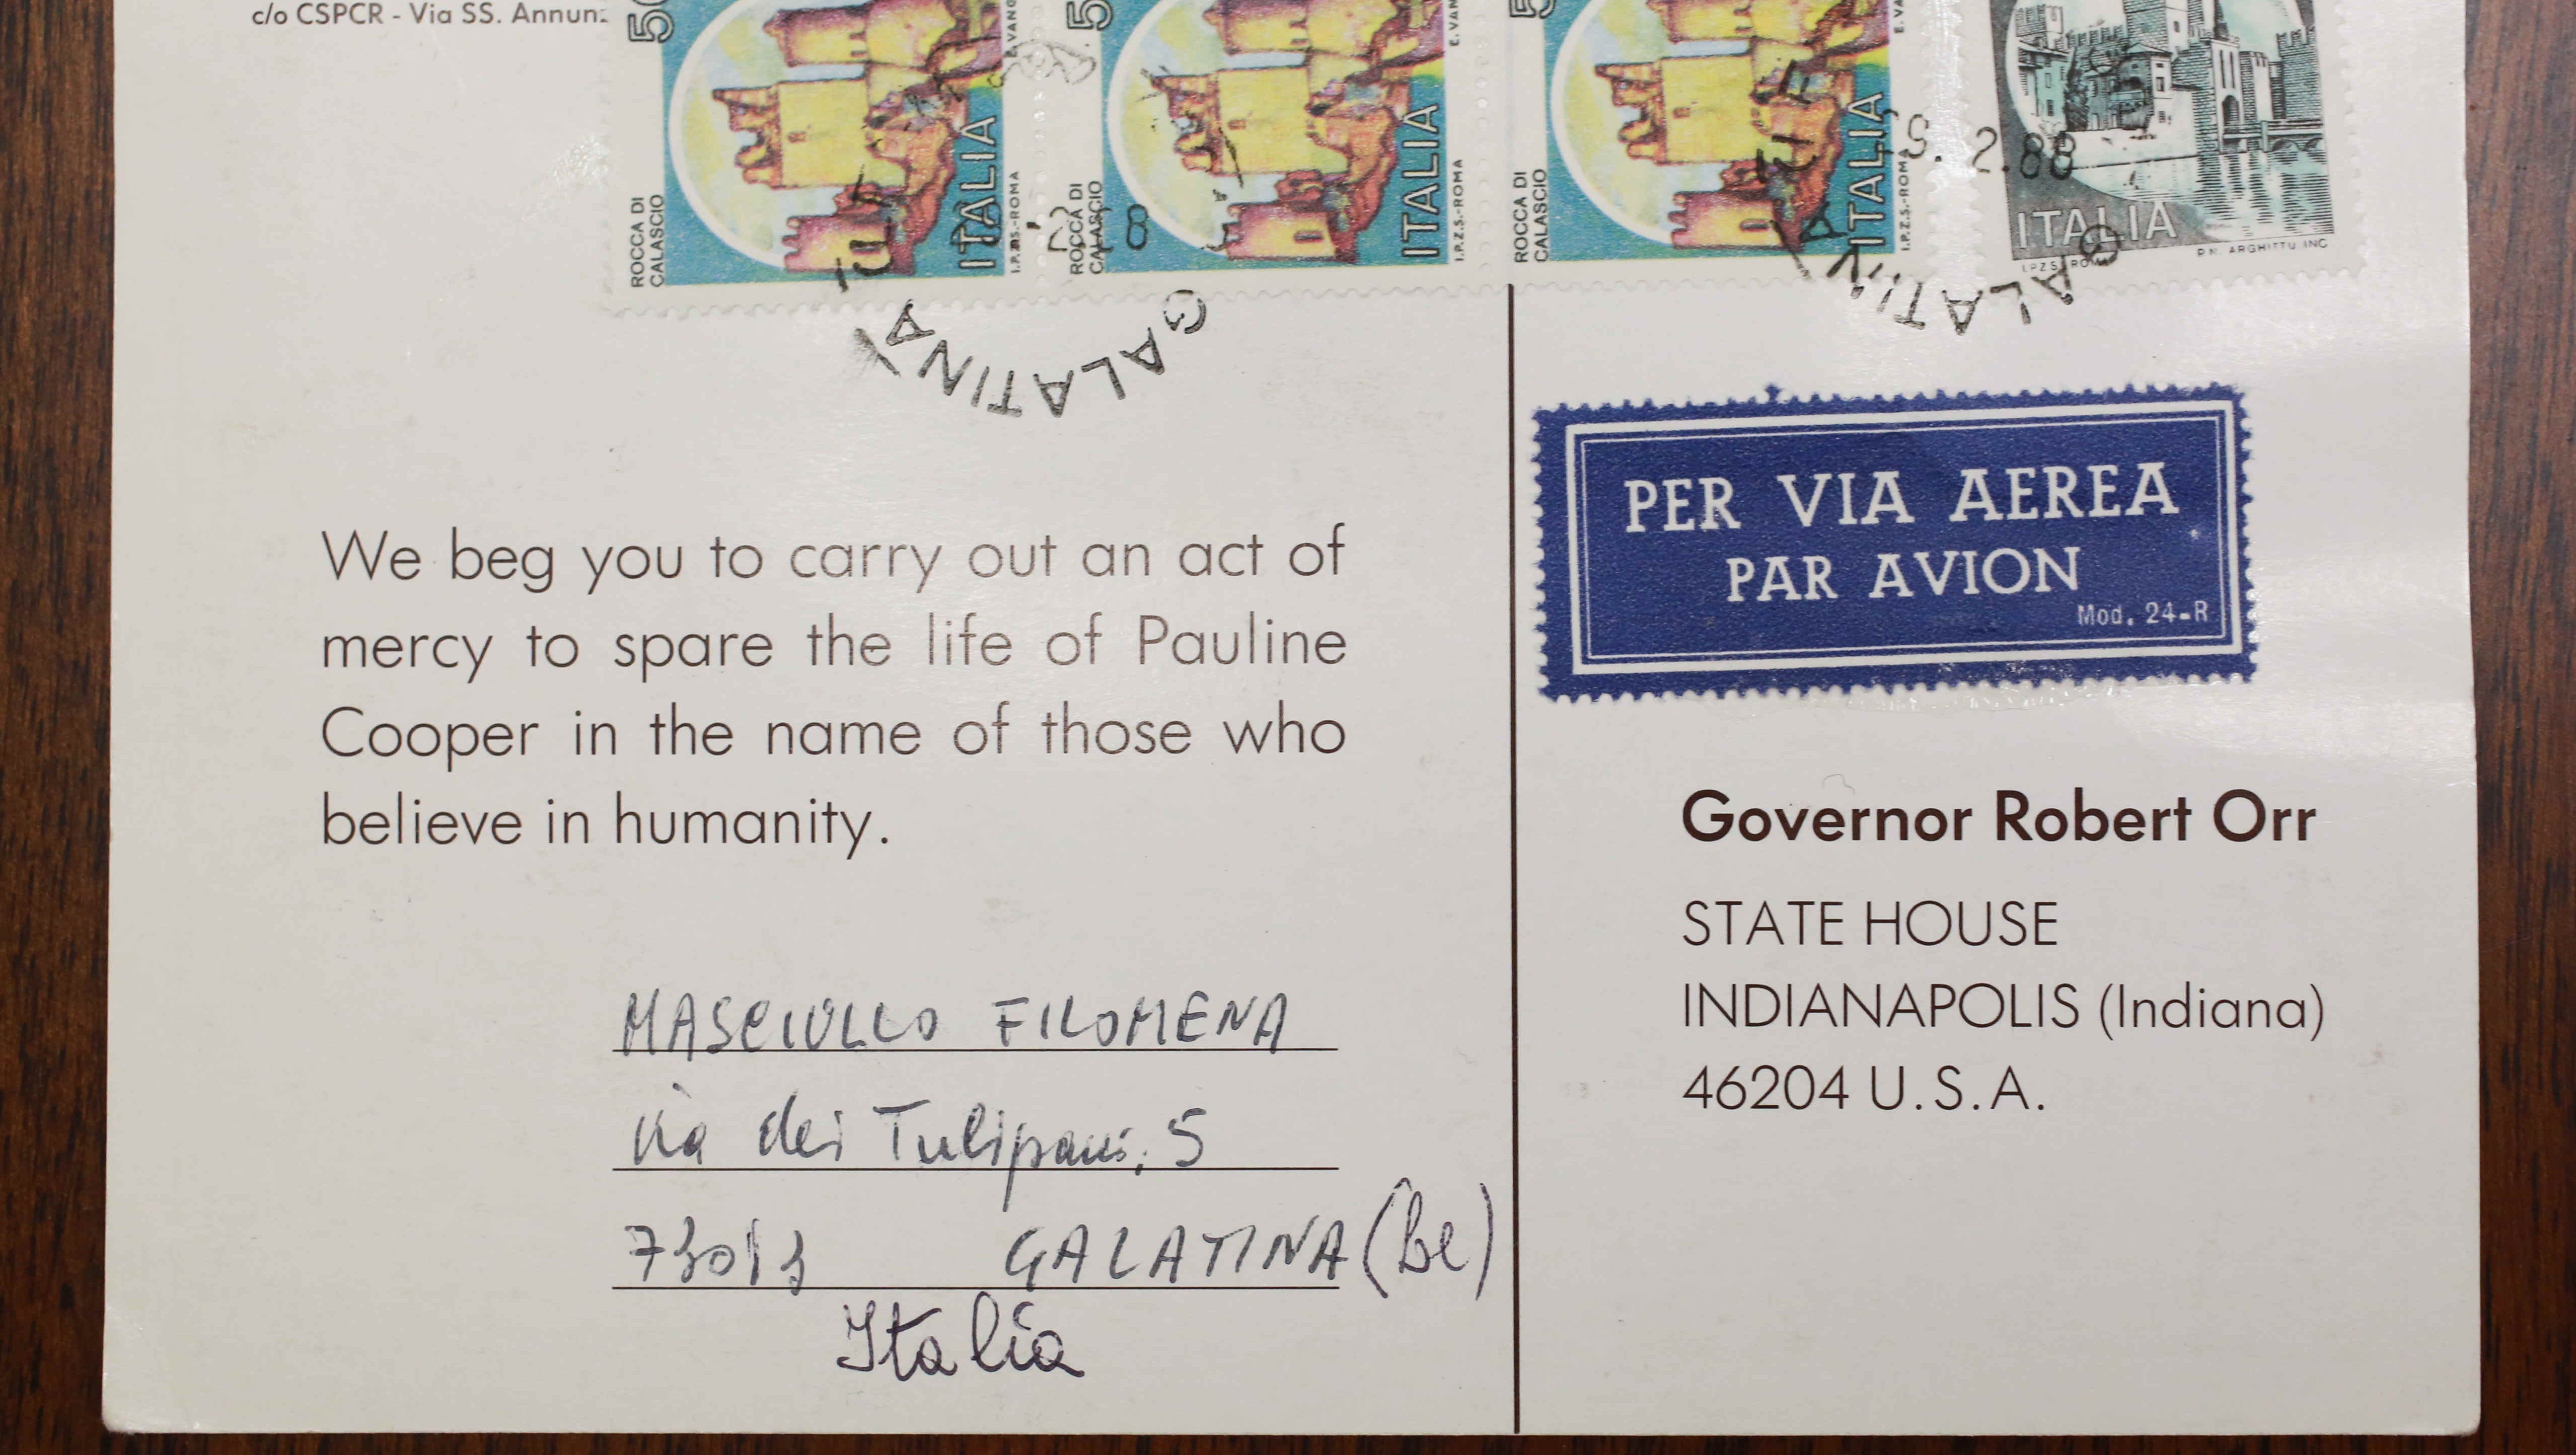 c/o CSPCR - Via SS.
ROCCA DI
CALASCIO
ITALIA
I.P.Z.S.-ROMA
ROCCA DI
CALASCIO
ITALIA
I.P.Z.S.-ROMA
ROCCA DI
CALASCIO
ITALIA
I.P.Z.S.-ROMA
ITALIA
I.P.Z.S. ROMA
P.N. ARGHITTU INC
2.88
GALATINA
GALATINA
PER VIA AEREA
PAR AVION
Mod. 24-R
We beg you to carry out an act of
mercy to spare the life of Pauline
Cooper in the name of those who
believe in humanity.
MASCIULLO FILOMENA
Via dei Tulipani, 5
73013 GALATINA (Le)
Italia
Governor Robert Orr
STATE HOUSE
INDIANAPOLIS (Indiana)
46204 U.S.A.